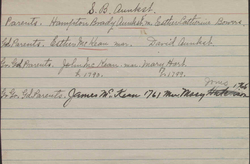 S. B. Aunkst.
Parents. Hampton Boady Aunkst m Esther Catherine Bowns
Gd Parents. Esther McKean mar. David Aunkst.
Gr. Gd Parents. John Mc Kean mar Mary Hark
b. 1790. b. 1799.
Jones
Gr. Gr. Gd Parents. James McKean 1761 Mar Mary